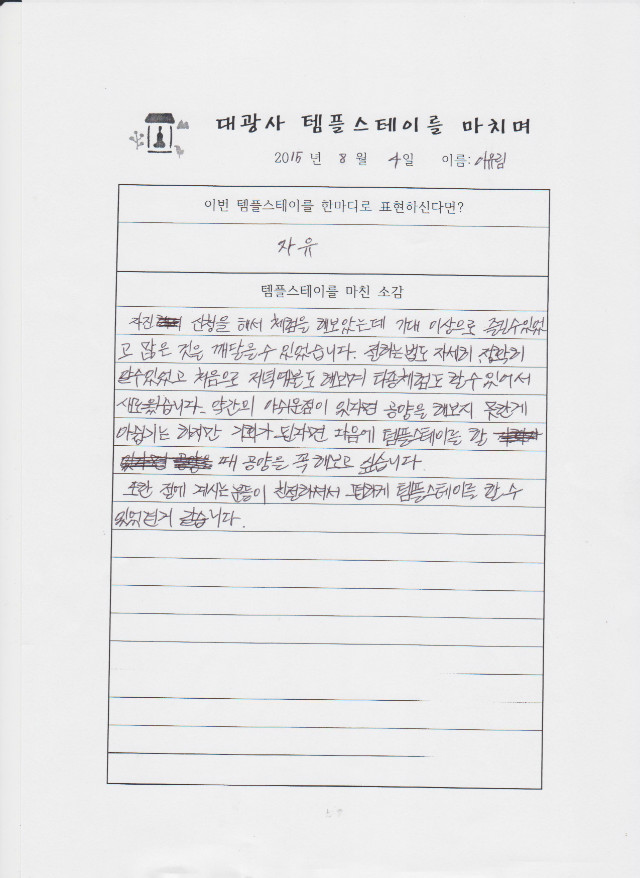 대광사 템플스테이를 마치며
2015 년 8 월 4 일 이름: 이유림
이번 템플스테이를 한마디로 표현하신다면?
자유
템플스테이를 마친 소감
자진 신청을 해서 체험을 해보았는데 기대 이상으로 즐길수있었
고 많은 것을 깨달을수 있었습니다. 절하는법도 자세히 정확히
알수있었고 처음으로 저녁예불도 해보며 다종체험도 할수 있어서
새로웠습니다. 약간의 아쉬운점이 있자면 공양을 해보지 못한게
아쉽기는 하지만 기회가 된다면 다음에 템플스테이를 할
때 공양을 꼭 해보고 싶습니다.
또한 절에 계시는분들이 친절하셔서 편하게 템플스테이를 할 수
있었던거 같습니다.